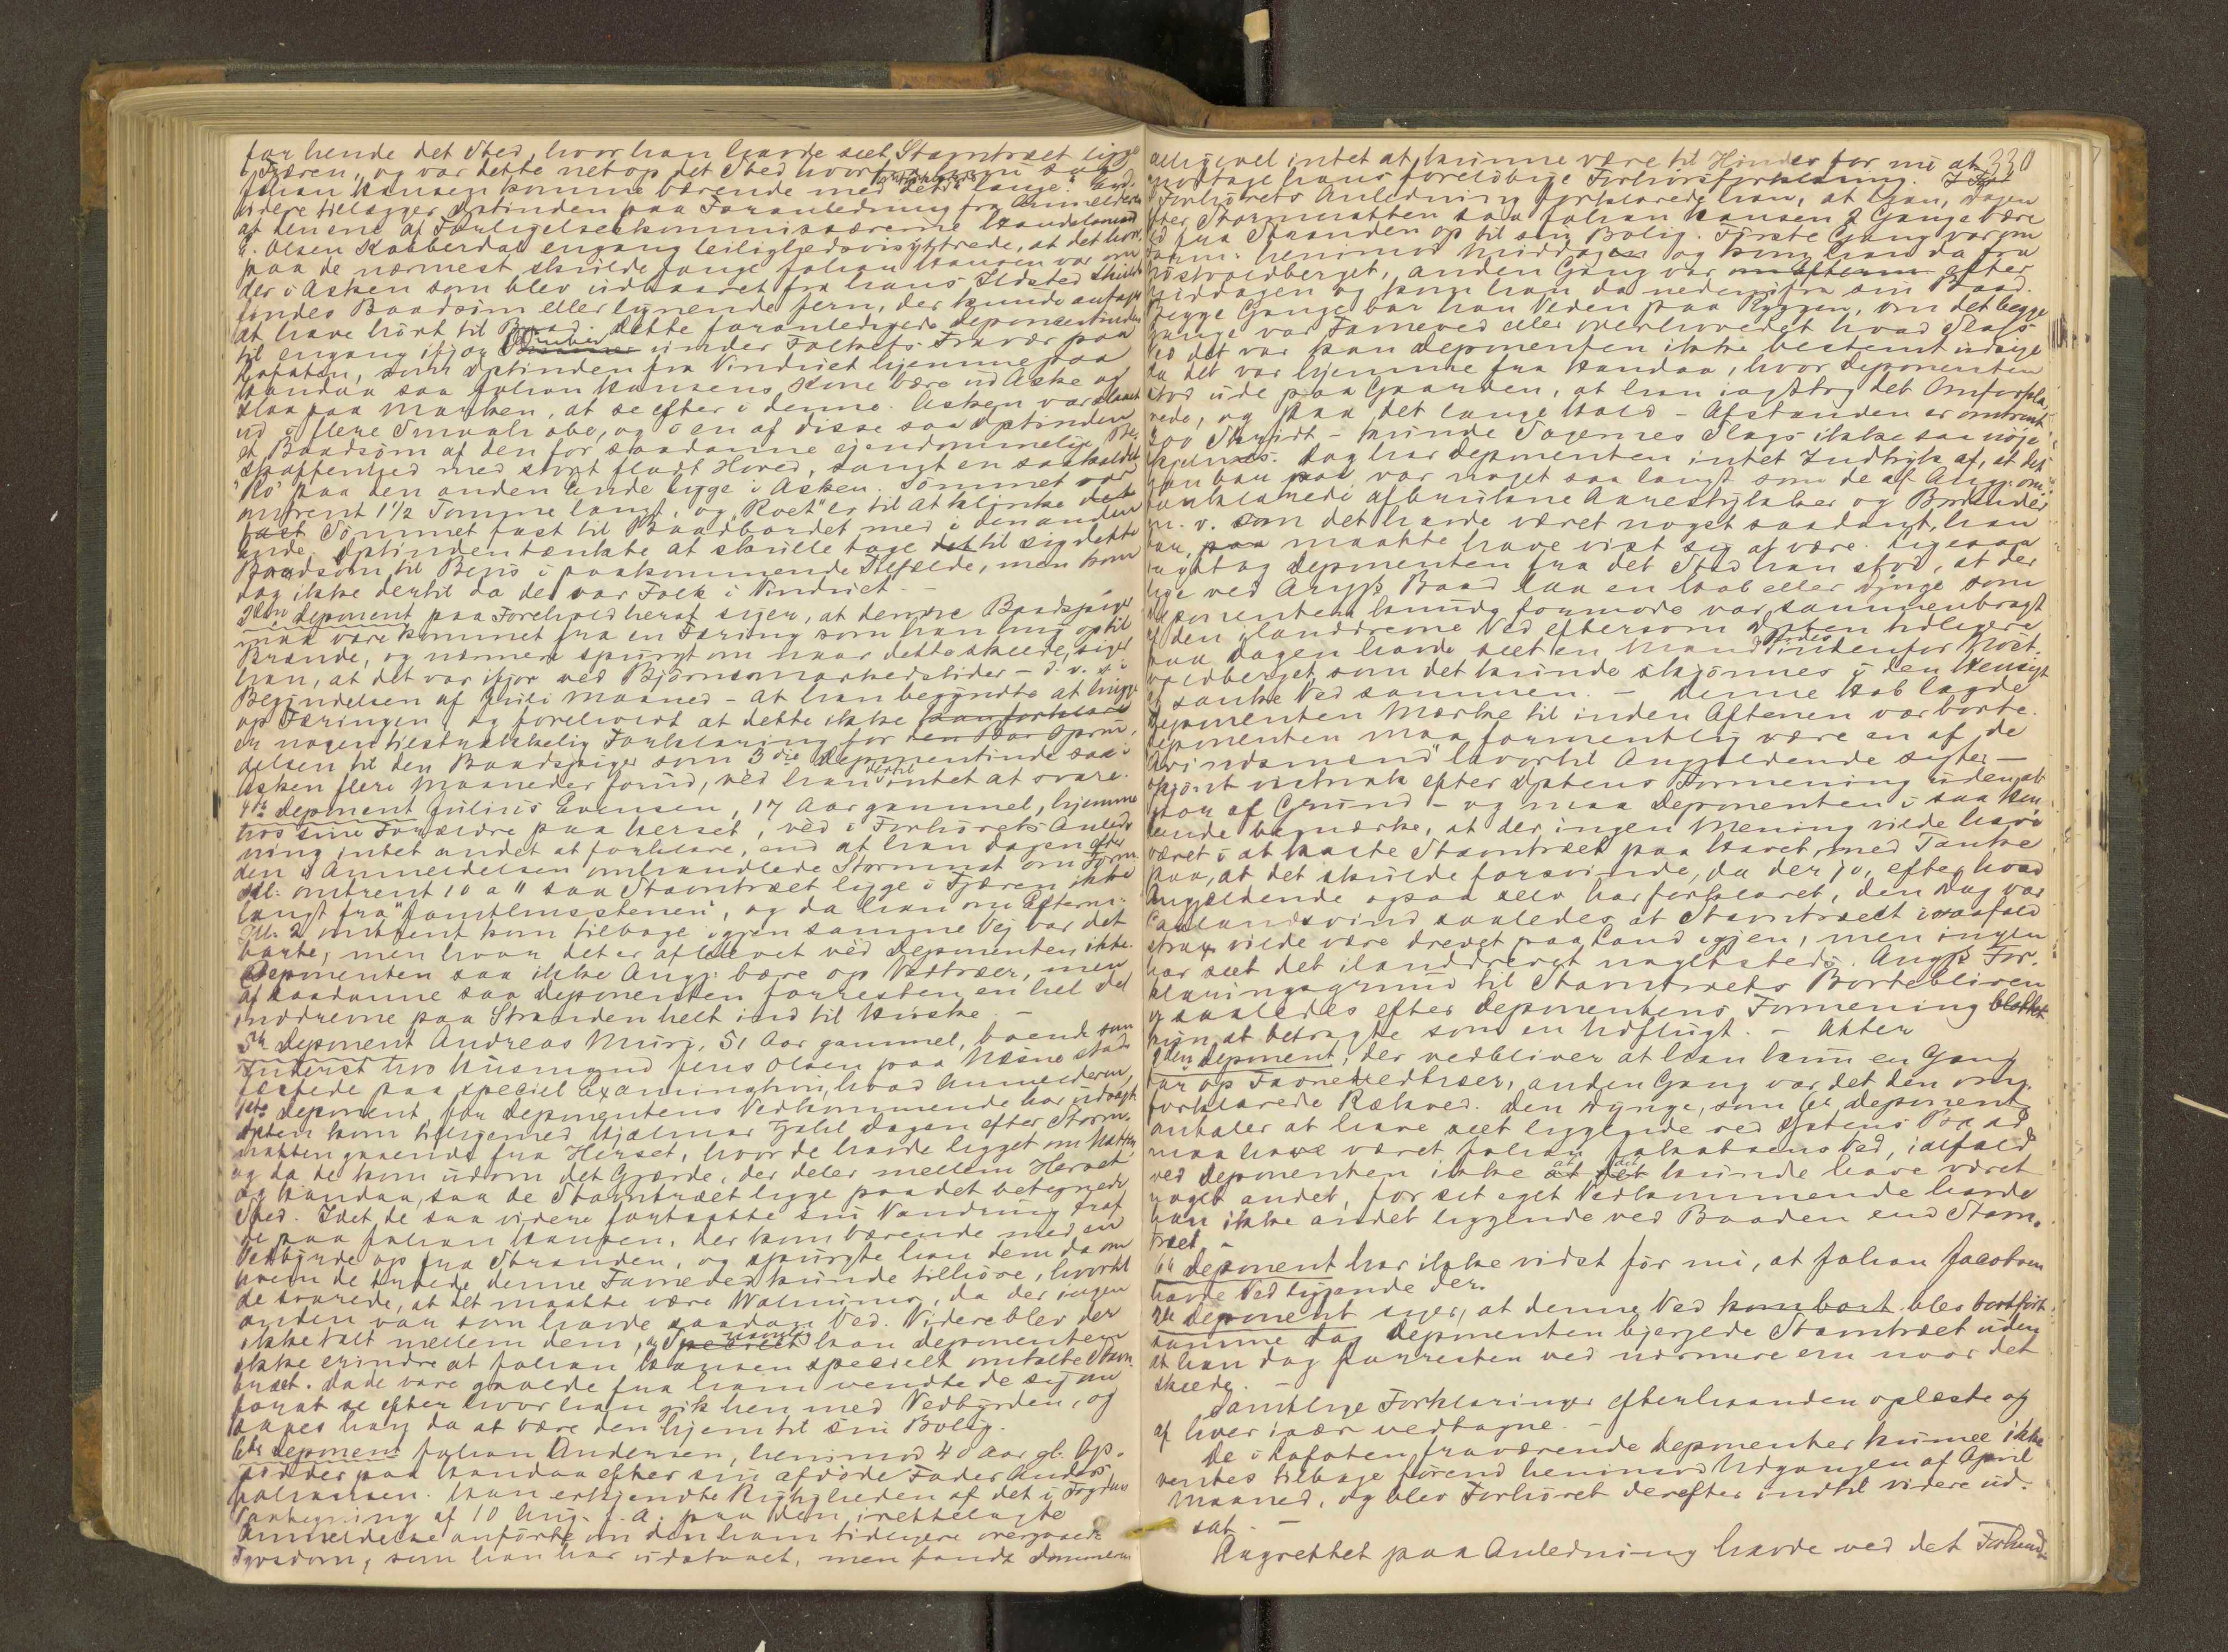 for hende det Sted, hvor han havde seet Stavntræet ligge
i Fjæren, og var dette netop det Sted hvorfra hun saa
Johan Hansen komme bærende med det "lange". End-
videre tillægger Dptinden paa Foranledning fra Anmelderen
at den ene af Forligelseskommissærerne Handelsmand
J. Olsen Kobberdal engang leilighedsvis yttrede, at det hvor-
paa de nærmest skulde fange Johan Hansen var om
der i Asken som blev udbaaret fra hans Ildsted skulde
findes Baadsøm eller lignende Jern, der kunde antages
at have hørt til Baad. Dette foranledigede Deponentinden
til engang ifjor under Folkets Fravær paa
Lofoten, som Dptinden fra Vinduet hjemme paa
Handaa saa Johan Hansens Kone bære ud Aske og
slaa paa Marken, at se efter i denne. Asken var slaaet
ud i flere Smaahobe, og i en af disse saa Dptinden
et Baadsøm af den for saadanne ejendommelige Be-
skaffenhed med stort fladt Hoved, samt en saakaldet
"Ro" paa den anden Ende ligge i Asken. Sømmet var
omtrent 1½ Tomme langt, og "Roet" er til at klinke det
fast Sømmet fast til Baadbordet med i den anden
Ende. Dptinden tænkte at skulle tage det til sig dette
Baadsøm til Bevis i paakommende Tilfælde, men kom
dog ikke dertil da der var Folk i Vinduet. –
2den Deponent paa Forehold heraf siger, at denne Baadspiger
maa være kommet fra en Færing som han hug op til
Brænde, og nærmere spurgt om naar dette skeede, siger
han, at det var ifjor ved Bjørnsmarkedstider – d. v. s. i
Begyndelsen af Juli Maaned – at han begyndte at hugge
op Færingen, og foreholdt at dette ikke kan forklare
er nogen tilstrækkelig Forklaring for den Oprin-
delsen til den Baadspiger som 3die Deponentinde saa i
Asken flere Maaneder forud, véd han dertil intet at svare.
4de Deponent Julius Evensen, 17 Aar gammel, hjemme
hos sine Forældre paa Herset, véd i Forhørets Anled-
ning intet andet at forklare, end at han Dagen efter
den i Anmeldelsen omhandlede Stormnat om Form.
Kl. omtrent 10 a 11 saa Stavntræet ligge i Fjæren ikke
langt fra "Jomtlusstenen", og da han om Efterm.
Kl. 2 omtrent kom tilbage igjen samme Vej var det
borte, men hvor det er afblevet véd Deponenten ikke.
Deponenten saa ikke Angj. bære op Vedtræer, men
af saadanne saa Deponenten forresten en hel Del
inddrevne paa Stranden helt ind til Kirke. –
5te Deponent Andreas Muri, 51 Aar gammel, boende som
Inderst hos Husmand Jens Olsen paa Næsne stad-
fæstede paa speciel Examination, hvad Anmelderen,
1ste Deponent, for Deponentens Vedkommende har udsagt.
Dpten kom tilligemed Hjalmar Zahl Dagen efter Storm-
natten gaaende fra Herset, hvor de havde ligget om Natten
og da de kom udom det Gjærde, der deler mellem Herset
og Handaa, saa de Stavntræet ligge paa det betegnede
Sted. Idet de saa videre fortsatte sin Vandring traf
de paa Johan Hansen, der kom bærende med en
Vedbyrde op fra Stranden, og spurgte han dem da om
hvem de troede denne Favneved kunde tilhøre, hvortil
de svarede, at det maatte være Walnums, da der ingen
anden var som havde saadan Ved. Videre blev der
ikke talt mellem dem, og navnlig kan Deponenten
ikke erindre at Johan Hansen specielt omtalte Stavn-
træet. Da de vare gaaede fra ham vendte de sig om
forat se efter hvor han gik hen med Vedbyrden, og
saaes han da at bære den hjem til sin Bolig.
6te Deponent Johan Andersen, henimod 40 Aar gl. Op-
sidder paa Handaa efter sin afdøde Fader Anders
Johansen. Han erkjendte Rigtigheden af det i Fogdens
Paategning af 10 Aug. f. A. paa den irettelagte
Anmeldelse anførte om den ham tidligere overgaaede
Tyvsdom, som han har udstaaet, men fandt Dommeren
330
alligevel intet at kunne være til Hinder for nu at
modtage hans foreløbige Forhørsforklaring.
Forhørets Anledning forklarede han, at han, Dagen
efter Stormnatten saa Johan Hansen 2 Gange bære
Ved fra Stranden op til sin Bolig. Første Gang var om
Form. henimod Middag og kom han da fra
Høstvoldberget, anden Gang var om Efterm efter
Middagen og kom han da nedenifra sin Baad.
Begge Gange bar han Veden paa Ryggen, om det begge
Gange var Favneved eller overhovedet hvad Slags
Ved det var kan Deponenten ikke bestemt udsige
da det var hjemme fra Handaa, hvor Deponenten
stod ude paa Gaarden, at han iagttog det Omforkla-
rede, og paa det lange Hold – Afstanden er omtrent
300 Skridt – kunde Sagernes Slags ikke saa nøje
skjelnes. Dog har Deponenten intet Indtryk af, at det
han bar paa, var noget saa langt som de af Angj. om-
forklarede afbrukne Aarestykker og Bordender
m. v. Som det havde været noget saadant, han
bar, paa maatte have vist sig at være. Ligesaa
iagttog Deponenten fra det Sted han stod, at der
lige ved Angjs Baad laa en Hob eller Dynge som
Deponenten kunde formode var sammenbragt
af den ilanddrevne Ved eftersom Dpten tidligere
paa Dagen havde seet en Mand nedenfor Høst-
voldberget som det kunde skjønnes i den Hensigt
at sanke Ved sammen. – Denne Hob lagde
Deponenten Mærke til inden Aftenen var borte.
Deponenten maa formentlig være en af de
"Avindsmænd" hvortil Angjældende sigter –
skjønt vistnok efter Dptens Formening uden at
stor af Grund – og maa Deponenten i saa Hen-
seende bemærke, at der ingen Mening vilde have
været i at kaste Stavntræet paa Havet med Tanke
paa, at det skulde forsvinde, da der jo, efter hvad
Angjældende ogsaa selv har forklaret, den Dag var
Paalandsvind saaledes at Stavntræet isaafald
strax vilde være drevet paa Land igjen, men ingen
har seet det ilanddrevet nogetsteds. Angjs For-
klaringsgrund til Stavntræets Borteblivelse
er saaledes efter Deponentens Formening blottet
kun at betragte som en Udflugt. – Atter
2den Deponent, der vedbliver at han kun en Gang
bar op Favnevedtræer, anden Gang var det den om-
forklarede Rækved. Den Dynge, som 6te Deponent
omtaler at have seet liggende ved Dptens Baad
maa have været Johan Jakobsens Ved, ialfald
ved Deponenten ikke at det kunde have været
noget andet, for sit eget Vedkommende havde
han ikke andet liggende ved Baaden end Stavn-
træet. –
6te Deponent har ikke vidst før nu, at Johan Jacobsen
havde Ved liggende der.
2den Deponent siger, at denne Ved kom bort blev bortført
samme Dag Deponenten bjergede Stavntræet uden
at han dog forresten ved nærmere om naar det
skede. –
Samtlige Forklaringer efterhaanden oplæste og
af hver især vedtagne. –
De i Lofoten fraværende Deponenter kunne ikke
ventes tilbage førend henimod Udgangen af April
Maaned, og blev Forhøret derefter indtil videre ud-
sat. –
Angrettet paa Anledning havde ved det Forhand-